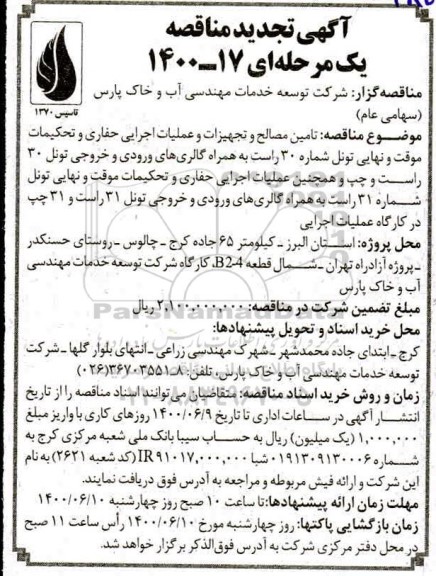 آگهی تجدید مناقصه
یک مرحله‌ای ۱۷-۱۴۰۰
تاسیس ۱۳۷۰
مناقصه‌گزار: شرکت توسعه خدمات مهندسی آب و خاک پارس
(سهامی عام)
موضوع مناقصه: تامین مصالح و تجهیزات و عملیات اجرایی حفاری و تحکیمات
موقت و نهایی تونل شماره ۳۰ راست به همراه گالری‌های ورودی و خروجی تونل ۳۰
راست و چپ و همچنین عملیات اجرایی حفاری و تحکیمات موقت و نهایی تونل
شماره ۳۱ راست به همراه گالری‌های ورودی و خروجی تونل ۳۱ راست و ۳۱ چپ
در کارگاه عملیات اجرایی
محل پروژه: استان البرز - کیلومتر ۶۵ جاده کرج - چالوس - روستای حسنکدر
- پروژه آزادراه تهران - شمال قطعه B2-4، کارگاه شرکت توسعه خدمات مهندسی
آب و خاک پارس
مبلغ تضمین شرکت در مناقصه: ۲,۱۰۰,۰۰۰,۰۰۰ ریال
محل خرید اسناد و تحویل پیشنهادها:
کرج - ابتدای جاده محمدشهر - شهرک مهندسی زراعی - انتهای بلوار گلها - شرکت
توسعه خدمات مهندسی آب و خاک پارس، تلفن: ۸-۳۶۷۰۳۵۵۱(۰۲۶)
زمان و روش خرید اسناد مناقصه: متقاضیان می‌توانند اسناد مناقصه را از تاریخ
انتشار آگهی در ساعات اداری تا تاریخ ۱۴۰۰/۰۶/۹ روزهای کاری با واریز مبلغ
۱,۰۰۰,۰۰۰ (یک میلیون) ریال به حساب سیبا بانک ملی شعبه مرکزی کرج به
شماره ۰۱۹۱۳۰۹۱۳۰۰۰۶ شبا IR ۹۱۰۱۷,۰۰۰,۰۰۰ (کد شعبه ۲۶۲۱) به نام
این شرکت و ارائه فیش مربوطه و مراجعه به آدرس فوق دریافت نمایند.
مهلت زمان ارائه پیشنهادها: تا ساعت ۱۰ صبح روز چهارشنبه ۱۴۰۰/۰۶/۱۰
زمان بازگشایی پاکتها: روز چهارشنبه مورخ ۱۴۰۰/۰۶/۱۰ رأس ساعت ۱۱ صبح
در محل دفتر مرکزی شرکت به آدرس فوق‌الذکر برگزار خواهد شد.
ParsNamadData